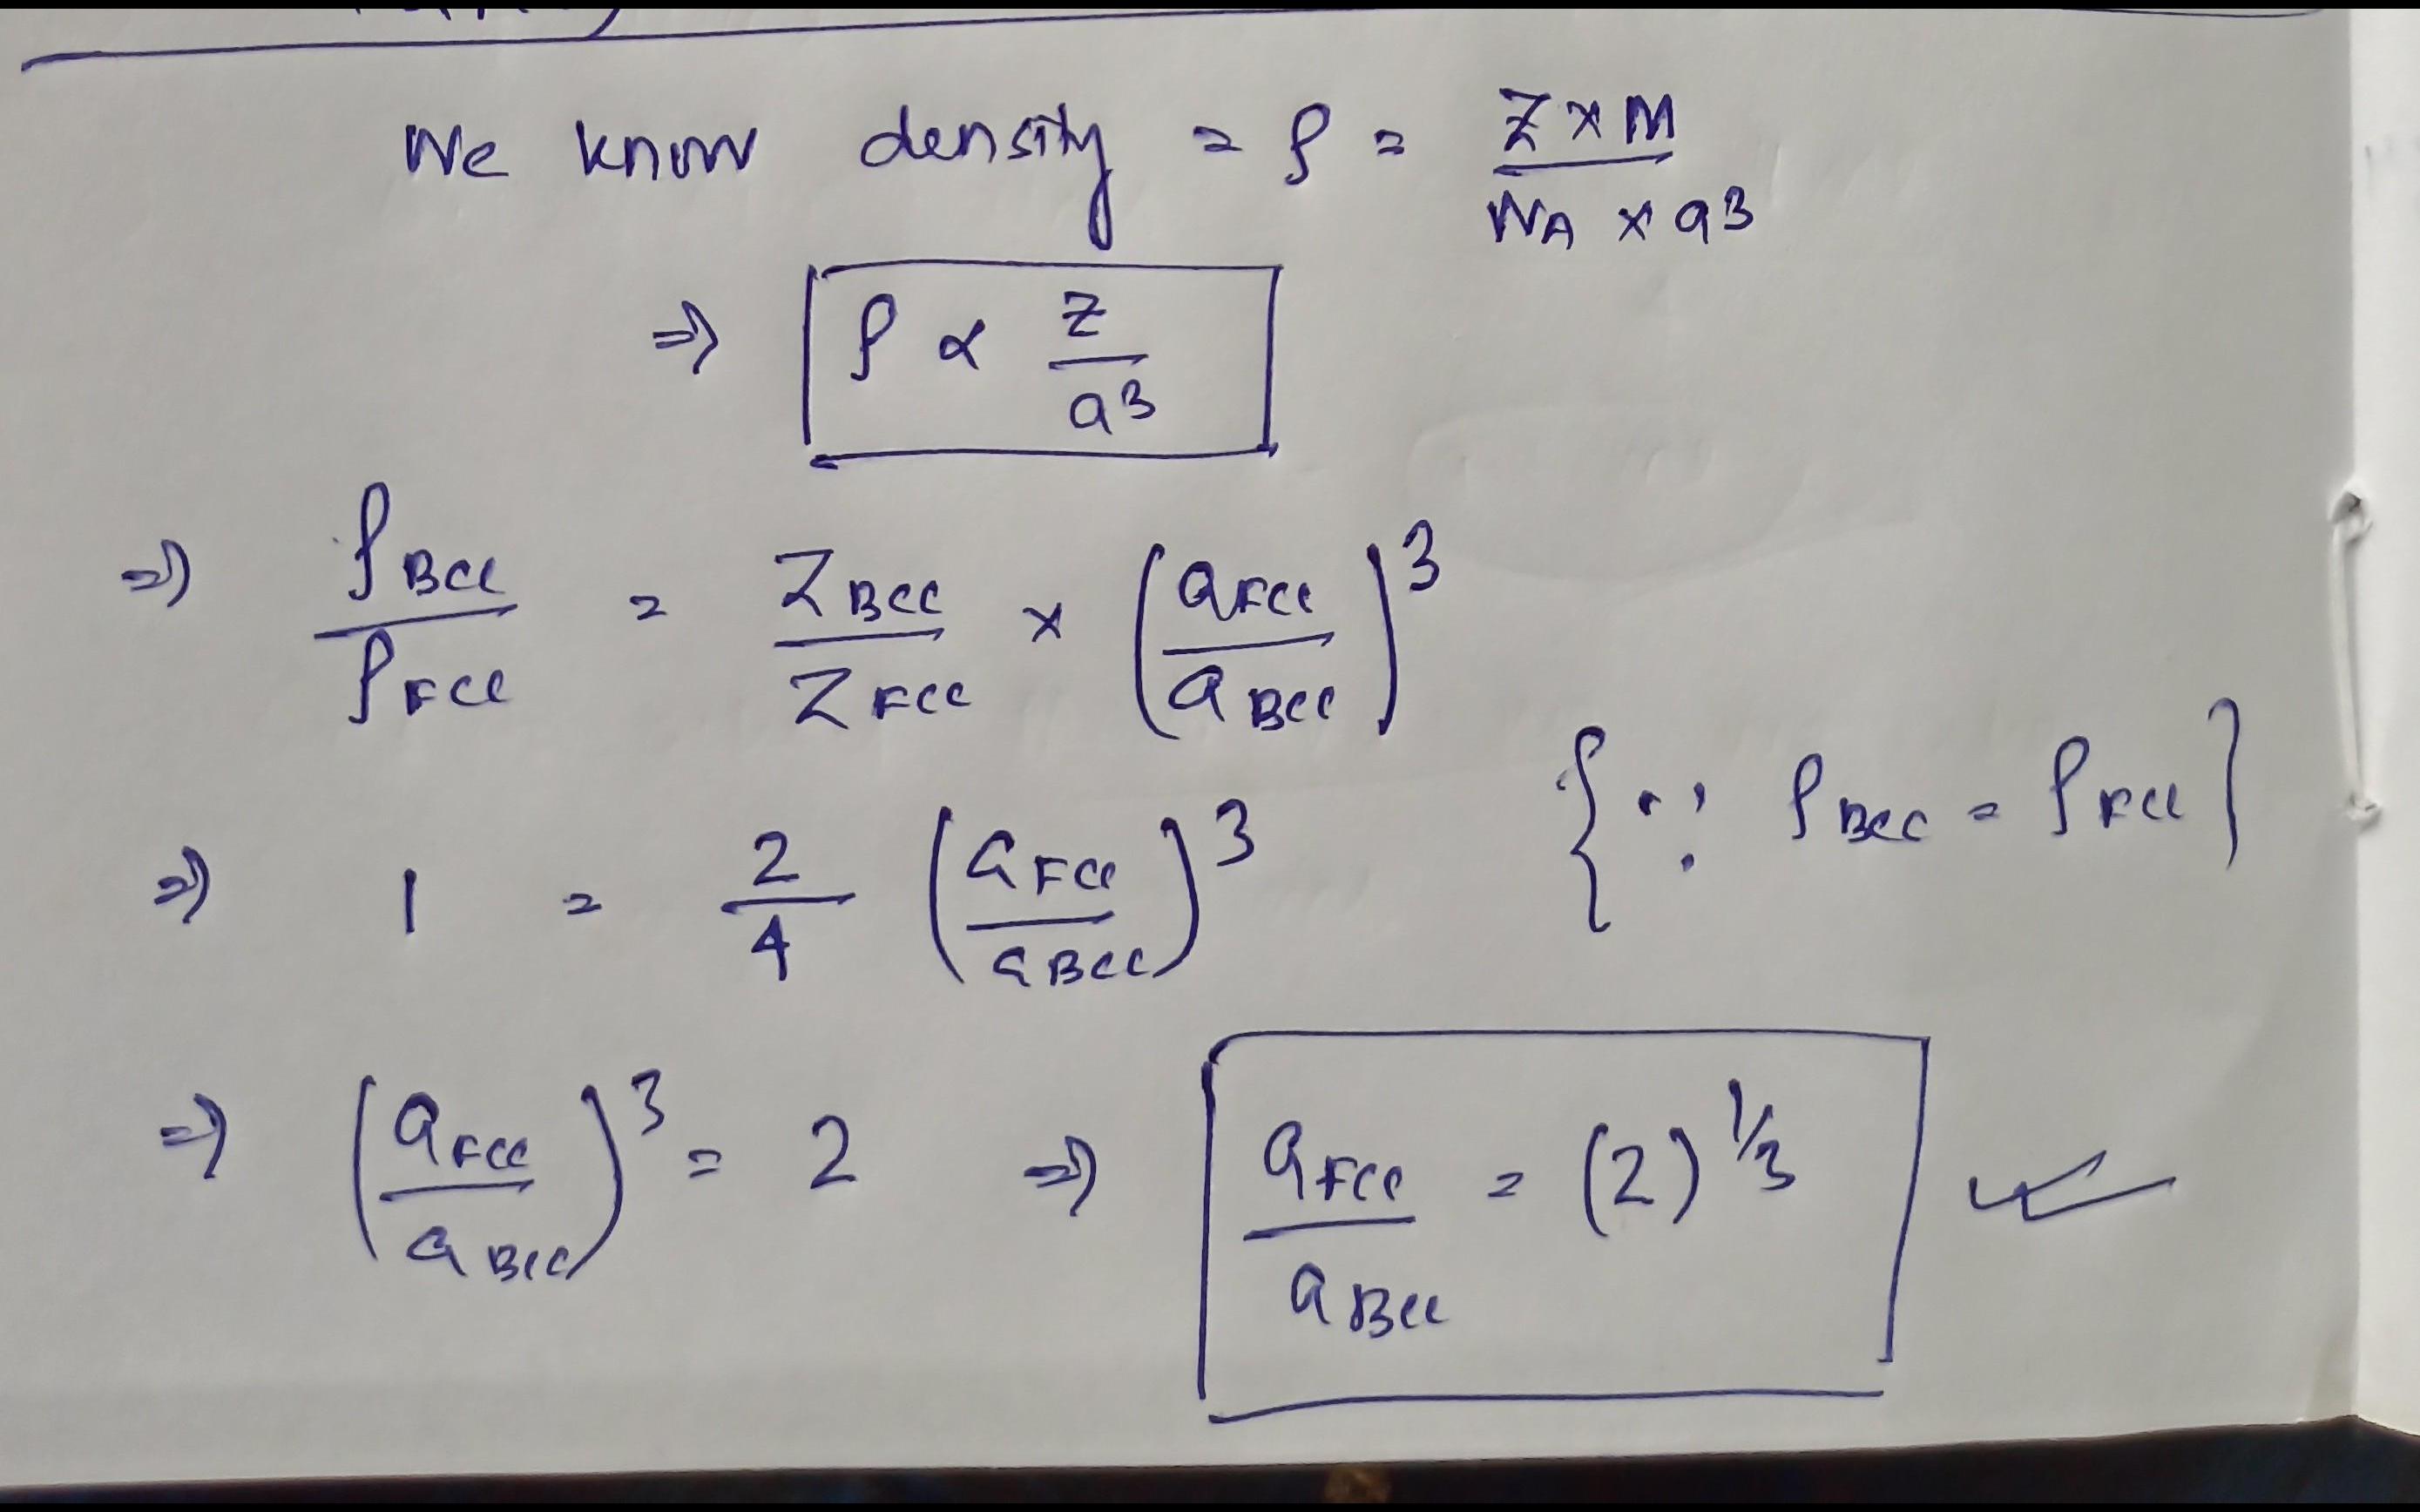 We know density = ρ = Z × M / NA × a3
⇒ ρ ∝ Z / a3
⇒ ρBCC / ρFCC = ZBCC / ZFCC × (aFCC / aBCC)^3
⇒ 1 = 2/4 (aFCC / aBCC)^3 {∵ ρBCC = ρFCC}
⇒ (aFCC / aBCC)^3 = 2 ⇒ aFCC / aBCC = (2)^1/3 ✓